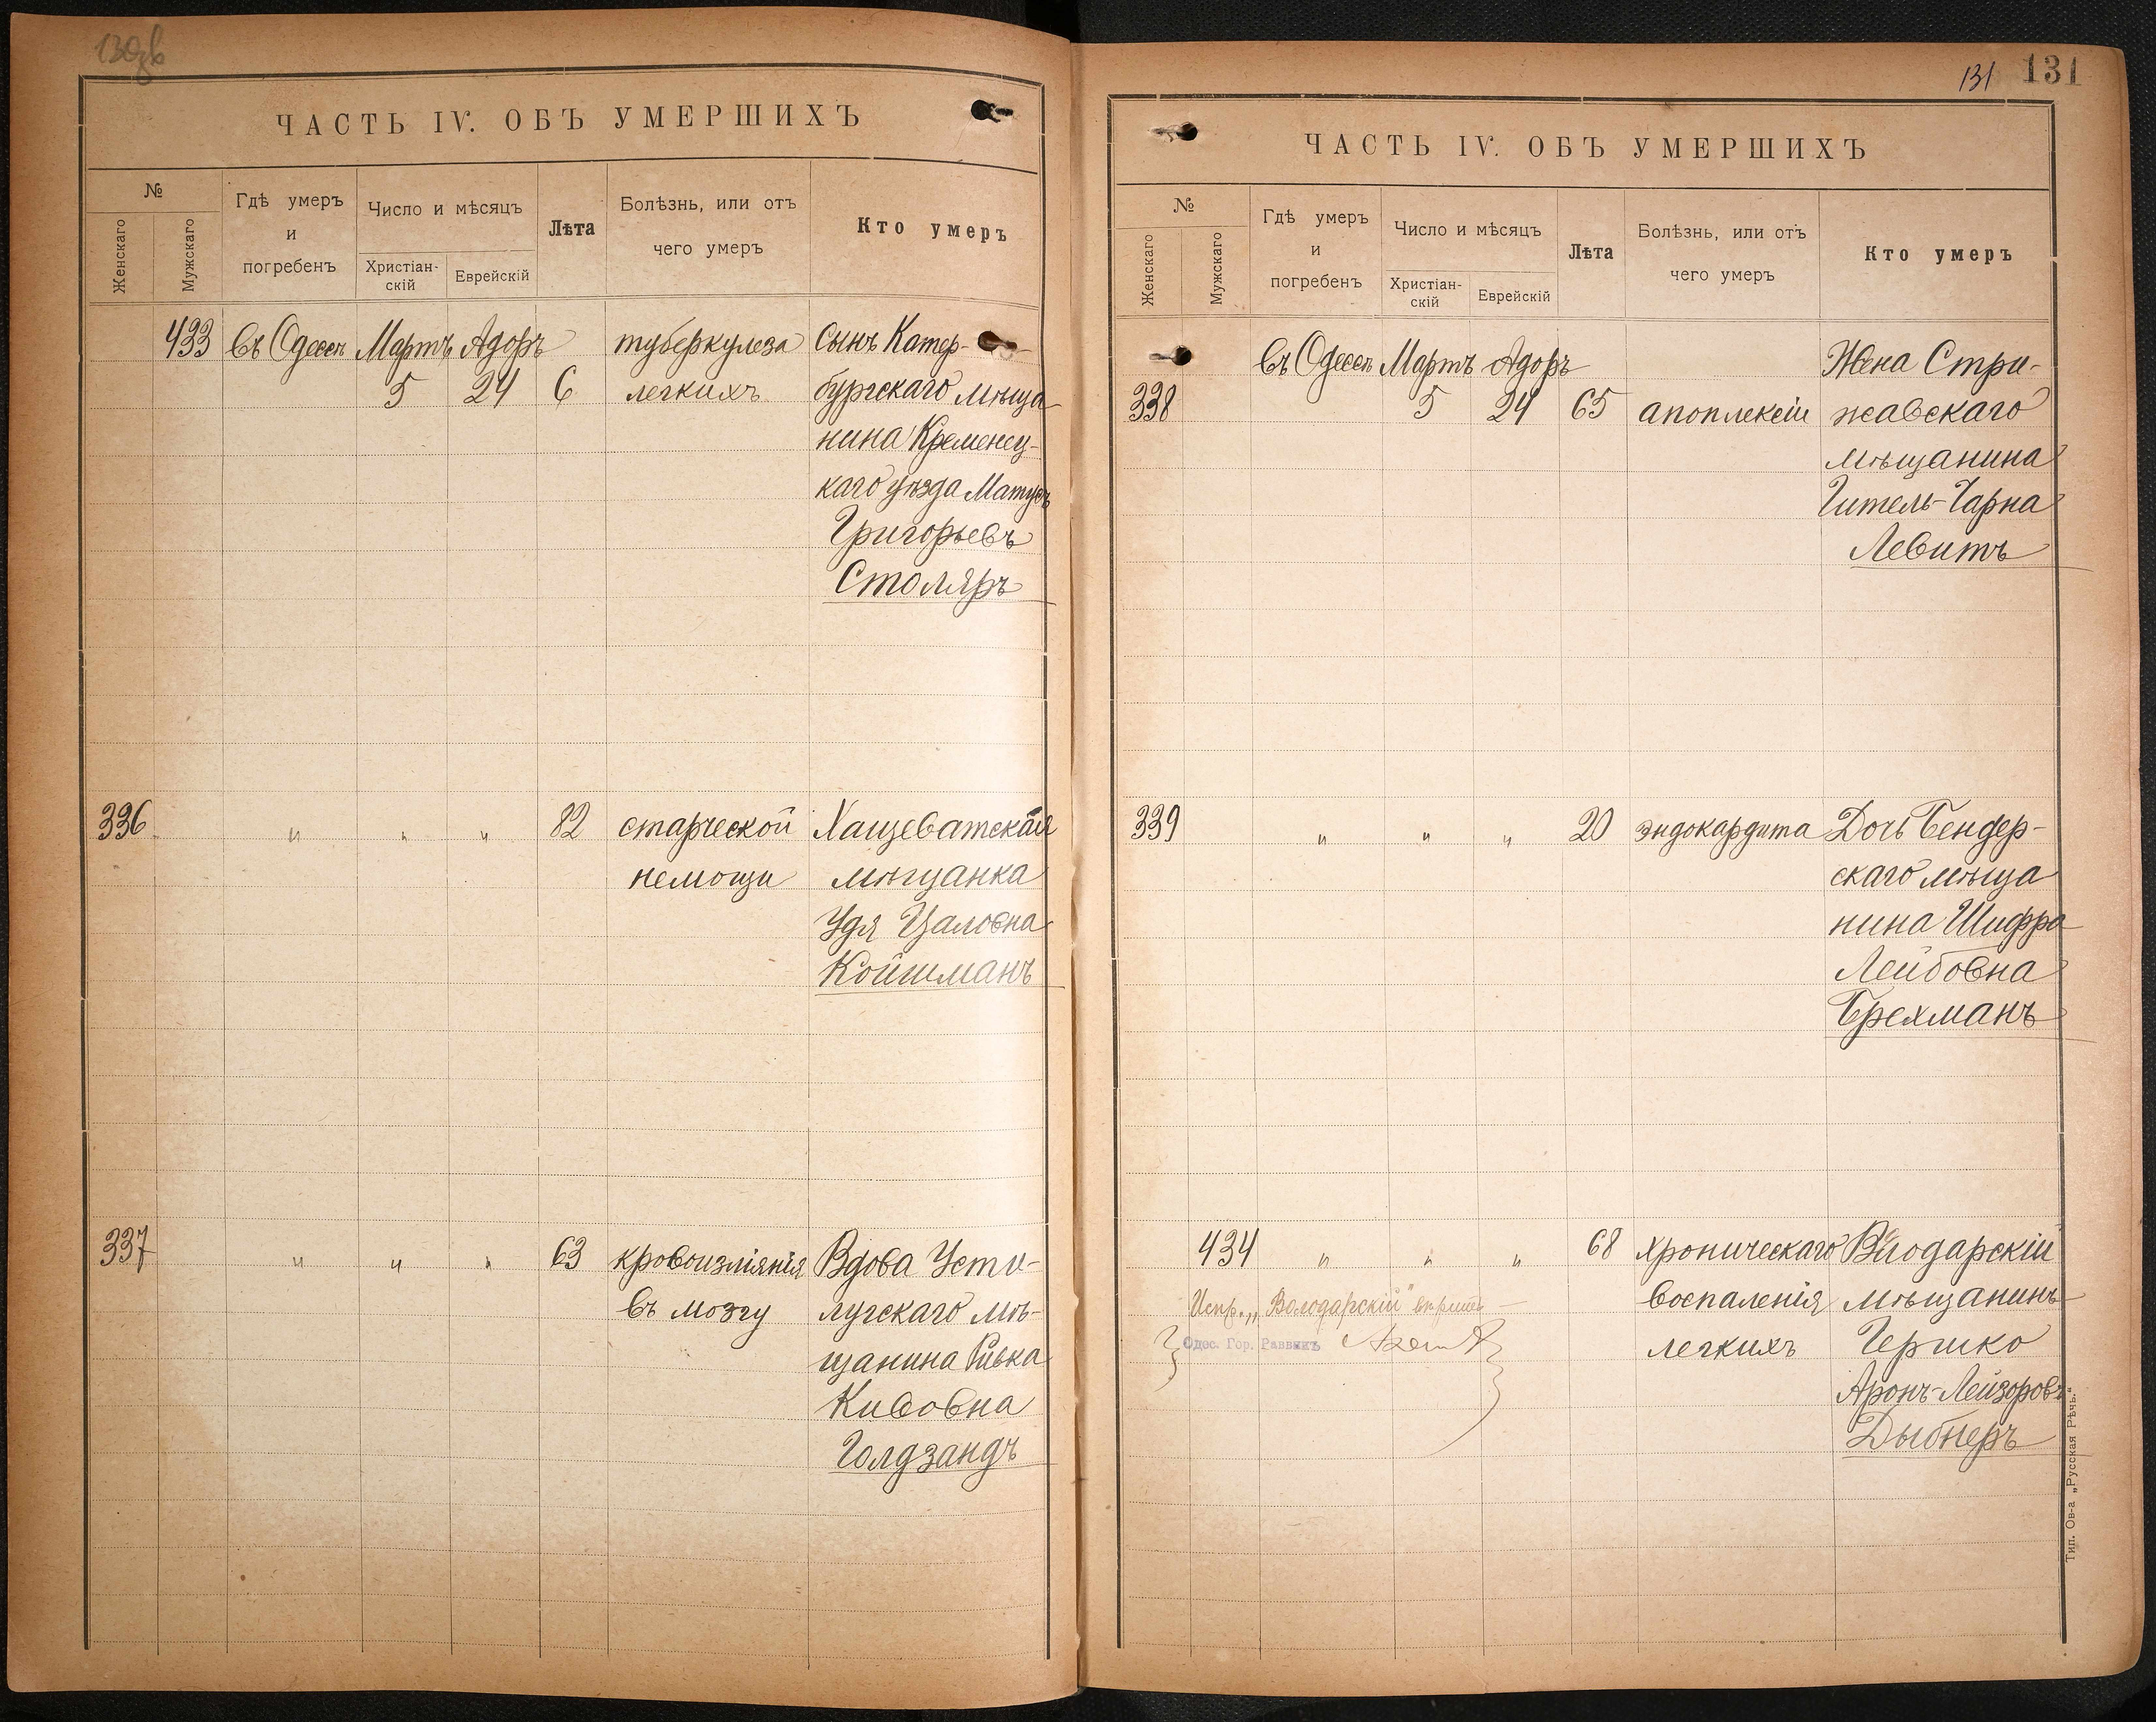 ЧАСТЬ IV. ОБЪ УМЕРШИХЪ
№
Женскаго
Мужскаго
Гдѣ умеръ
и
погребенъ
Число и мѣсяцъ
Христіан-
скій
Еврейскій
Лѣта
Болѣзнь, или отъ
чего умеръ
Кто умеръ
433 въ Одессѣ Мартъ Адоръ туберкулеза сынъ Катер-
5 24 6 легкихъ бургскаго мѣща
нина Кременец-
каго уѣзда Матусъ
Григорьевъ
Столяръ
336 " " " 82 старческой Хащеватская
немощи мѣщанка
Удя Цаловна
Койшманъ
337 " " " 63 кровоизліянія Вдова Усти-
въ мозгу лугскаго мѣ-
щанина Ривка
Кивовна
Голдзандъ
131 131
ЧАСТЬ IV. ОБЪ УМЕРШИХЪ
№
Женскаго
Мужскаго
Гдѣ умеръ
и
погребенъ
Число и мѣсяцъ
Христіан-
скій
Еврейскій
Лѣта
Болѣзнь, или отъ
чего умеръ
Кто умеръ
въ Одессѣ Мартъ Адоръ Жена Стри-
338 5 24 65 апоплексіи жавскаго
мѣщанина
Гитель-Чарна
Левитъ
339 " " " 20 эндокардита Дочь Бендер-
скаго мѣща
нина Шифра
Лейбовна
Брехманъ
434 " " " 68 хроническаго Влодарскій
Испр. „Володарскій" вѣрить воспаленія мѣщанинъ
Одес. Гор. Раввинъ легкихъ Гершко
Аронъ-Лейзоровъ
Дыбнеръ
Тип. Ов-а „Русская Рѣчь."